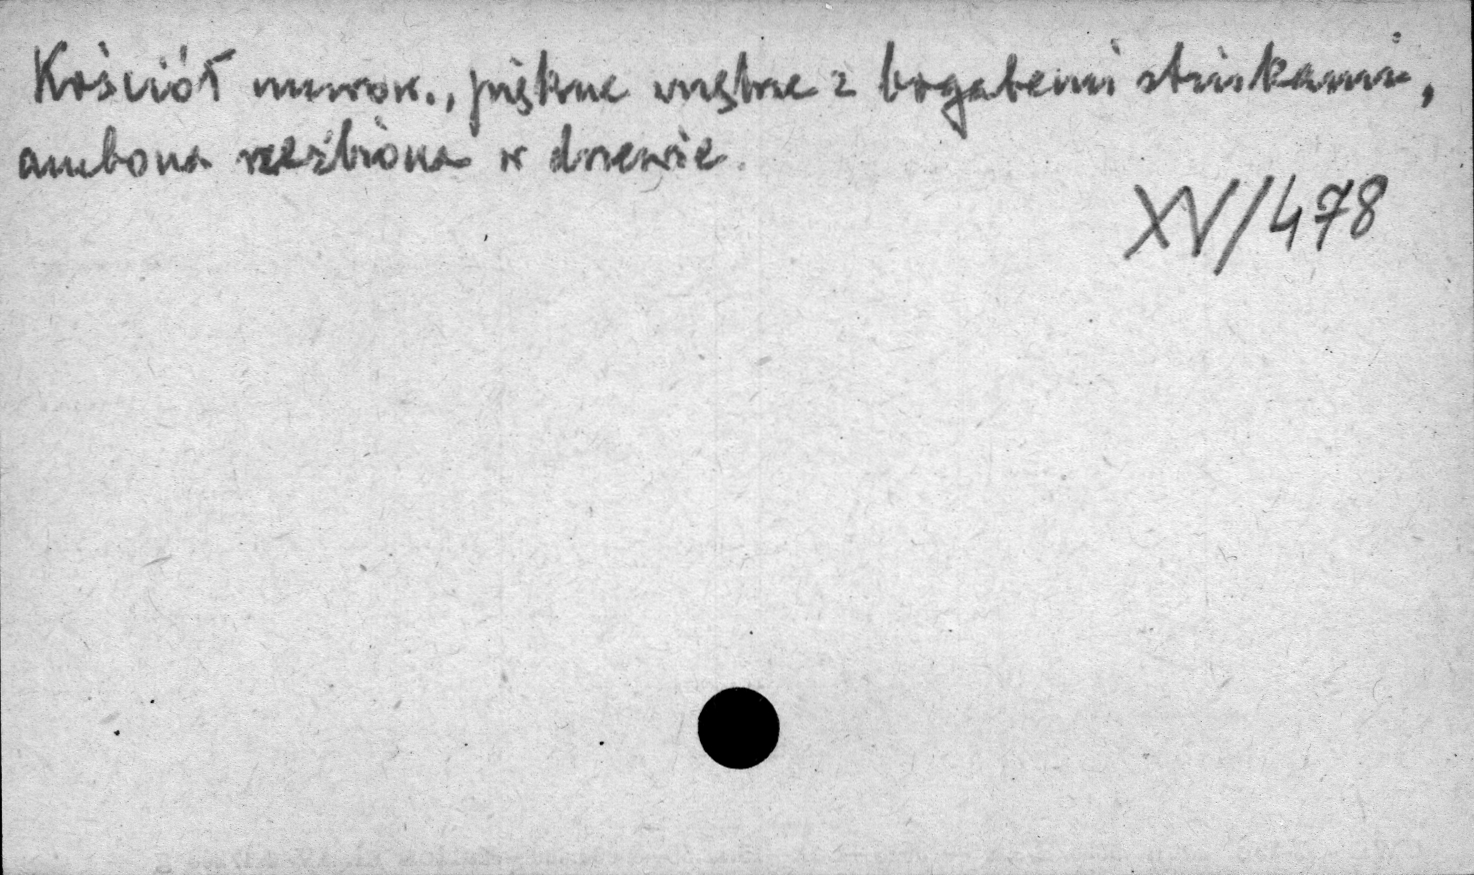 Kościół murow., piękne wnętrze z bogatemi stiukami,
ambona rzeźbiona w drzewie.
XV/478